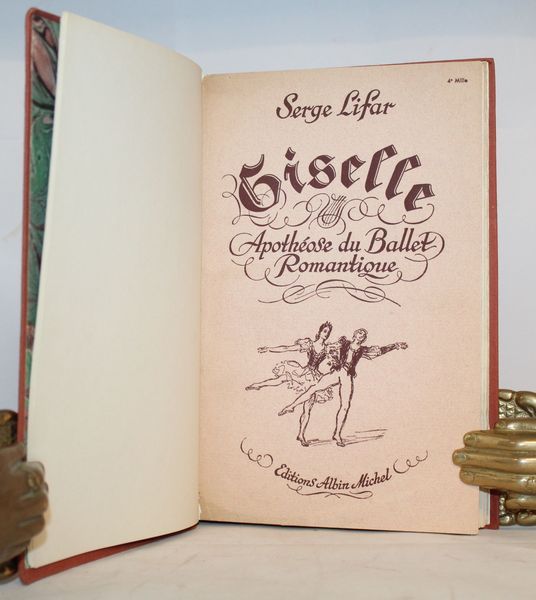 4e Mille
Serge Lifar
Giselle
Apothéose du Ballet
Romantique
Editions Albin Michel